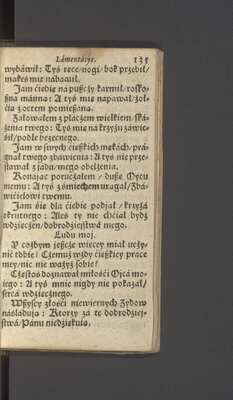 Lámentácye. 135
wybáwił: Tyś ręce/ nogi/ bok przebił/
mákeś mie nábáwił.
Jam ciebie ná puszczy karmił/ rosko-
szna mánna: A tyś mie napawał/ żoł-
cia z octem pomieszána.
Záłowałem z płáczem wielkiem/ ská-
żenia twego: Tyś mie ná krzyżu záwie-
sił/ podle bezecnego.
Jam w swych cieszkich mękách/ prá-
gnał twego zbáwienia: A tyś nie prze-
stawał z jádu/ mego obelżenia.
Konájąc poruczałem/ duszę Oycu
memu: A tyś z śmiechem uragał/ Zbá-
wićielowi twemu.
Jam się dla ciebie podjał/ krzyżá
okrutnego: Aleś ty nie chciał bydź
wdzięczen/ dobrodzieystwá mego.
Ludu moj.
Y cożbym jeszcze więcey miał uczy-
nić tobie? Czemuż wżdy cieszkiey prace
mey/ nic nie ważysz sobie?
Częstoś doznawał miłości Oycá mo-
iego: A tyś mnie nigdy nie pokazał/
sercá wdzięcznego.
Wszyscy złości niewiernych Zydow
násláduja: Ktorzy zá te dobrodziey-
stwá/ Pánu niedziękuią.